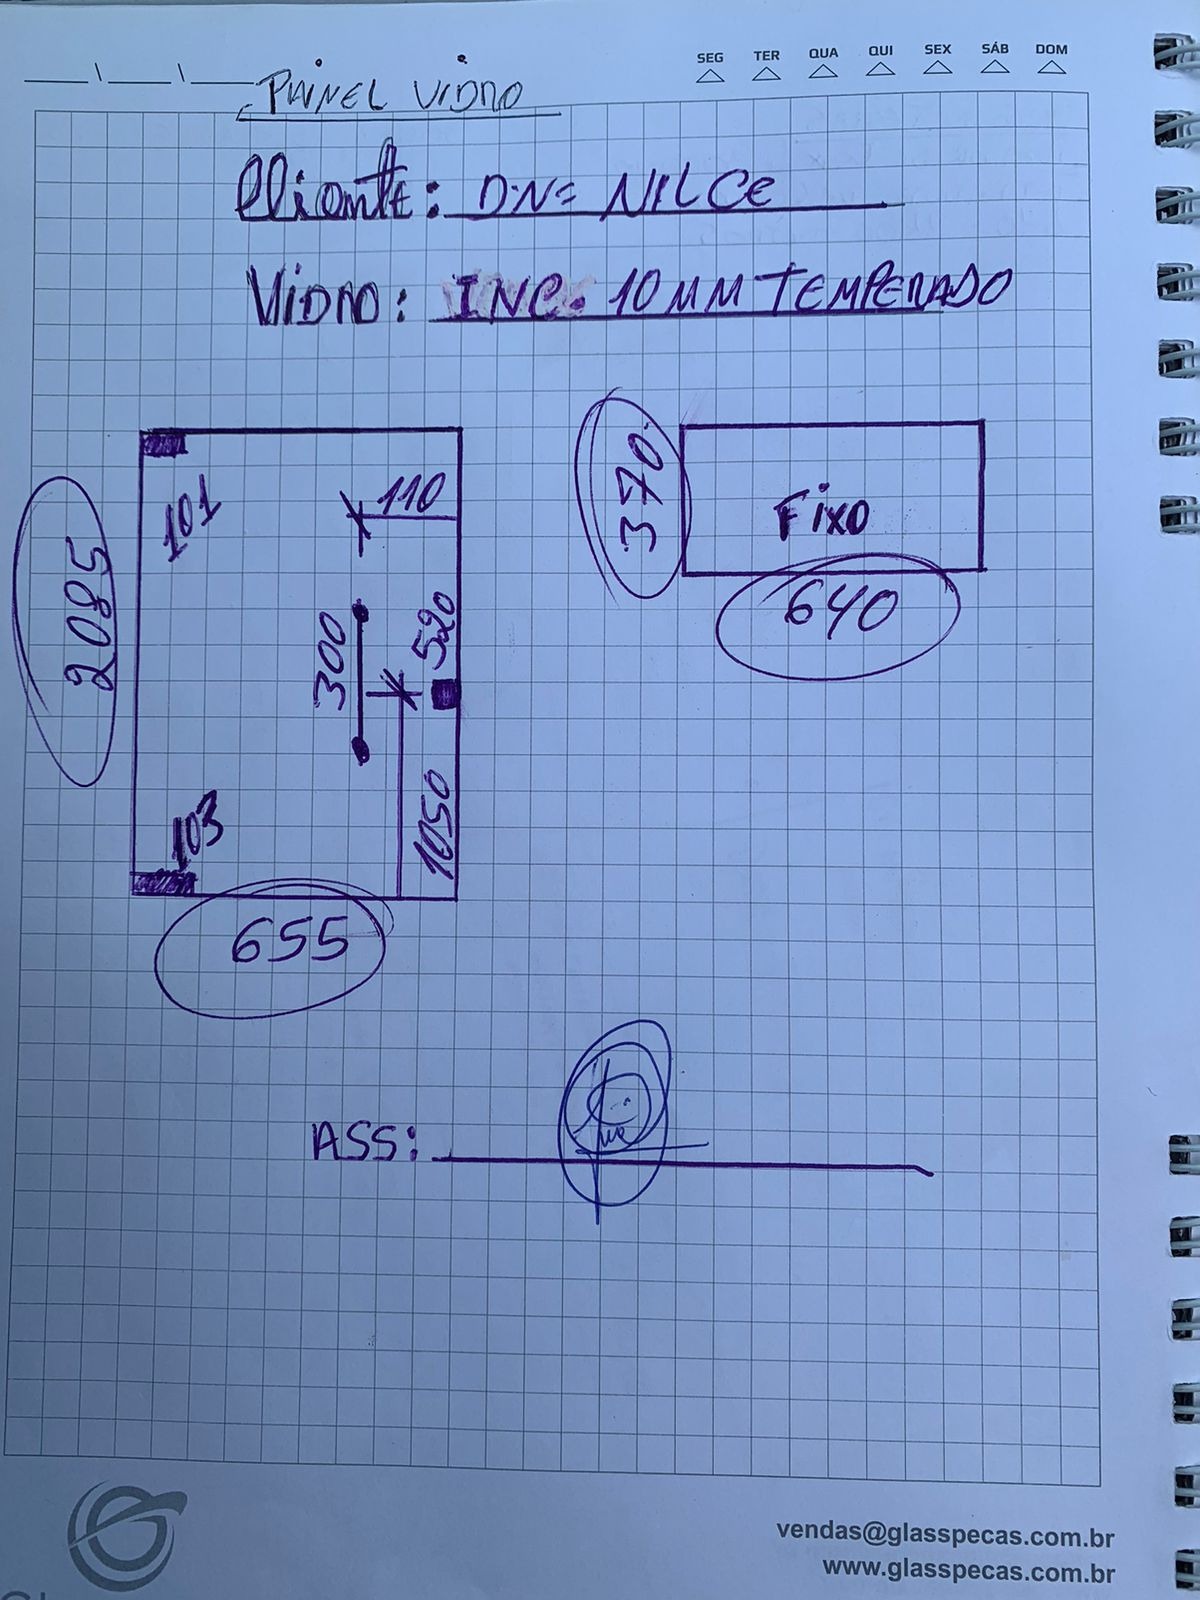 SEG TER QUA QUI SEX SÁB DOM
PAINEL VIDRO
Cliente: DNª NILCE
VIDRO: INC. 10MM TEMPERADO
101
110
2085
300
520
103
1050
655
370
Fixo
640
ASS:
vendas@glasspecas.com.br
www.glasspecas.com.br